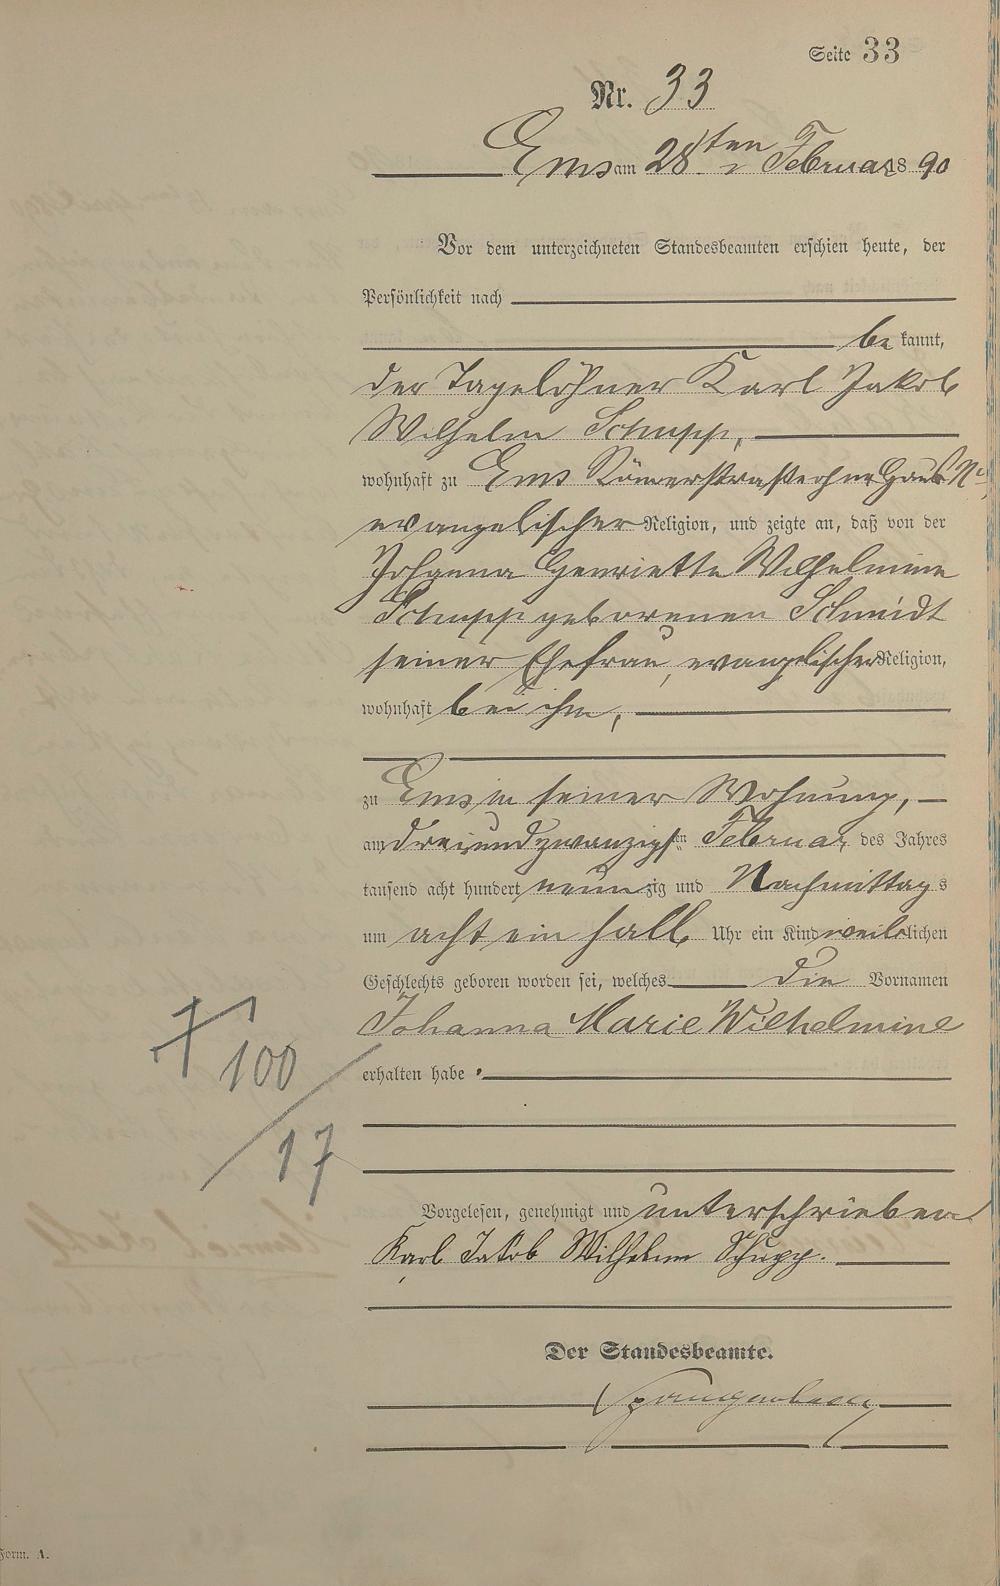 Seite 33
Nr. 33
Ems am 28ten Februar 1890
Vor dem unterzeichneten Standesbeamten erschien heute, der
Persönlichkeit nach
be kannt,
der Tagelöhner Karl Jakob
Wilhelm Schupp,
wohnhaft zu Ems Römerstraße ohne Haus No
evangelischer Religion, und zeigte an, daß von der
Johanna Henriette Wilhelmine
Schupp geborenen Schmidt
seiner Ehefrau, evangelischer Religion,
wohnhaft bei ihm,
zu Ems in seiner Wohnung,
am dreiundzwanzigsten Februar des Jahres
tausend acht hundert neunzig und Nachmittags
um acht ein halb Uhr ein Kind weiblichen
Geschlechts geboren worden sei, welches die Vornamen
Johanna Marie Wilhelmine
erhalten habe.
100
17
Vorgelesen, genehmigt und unterschrieben
Karl Jakob Wilhelm Schupp.
Der Standesbeamte.
Form. A.